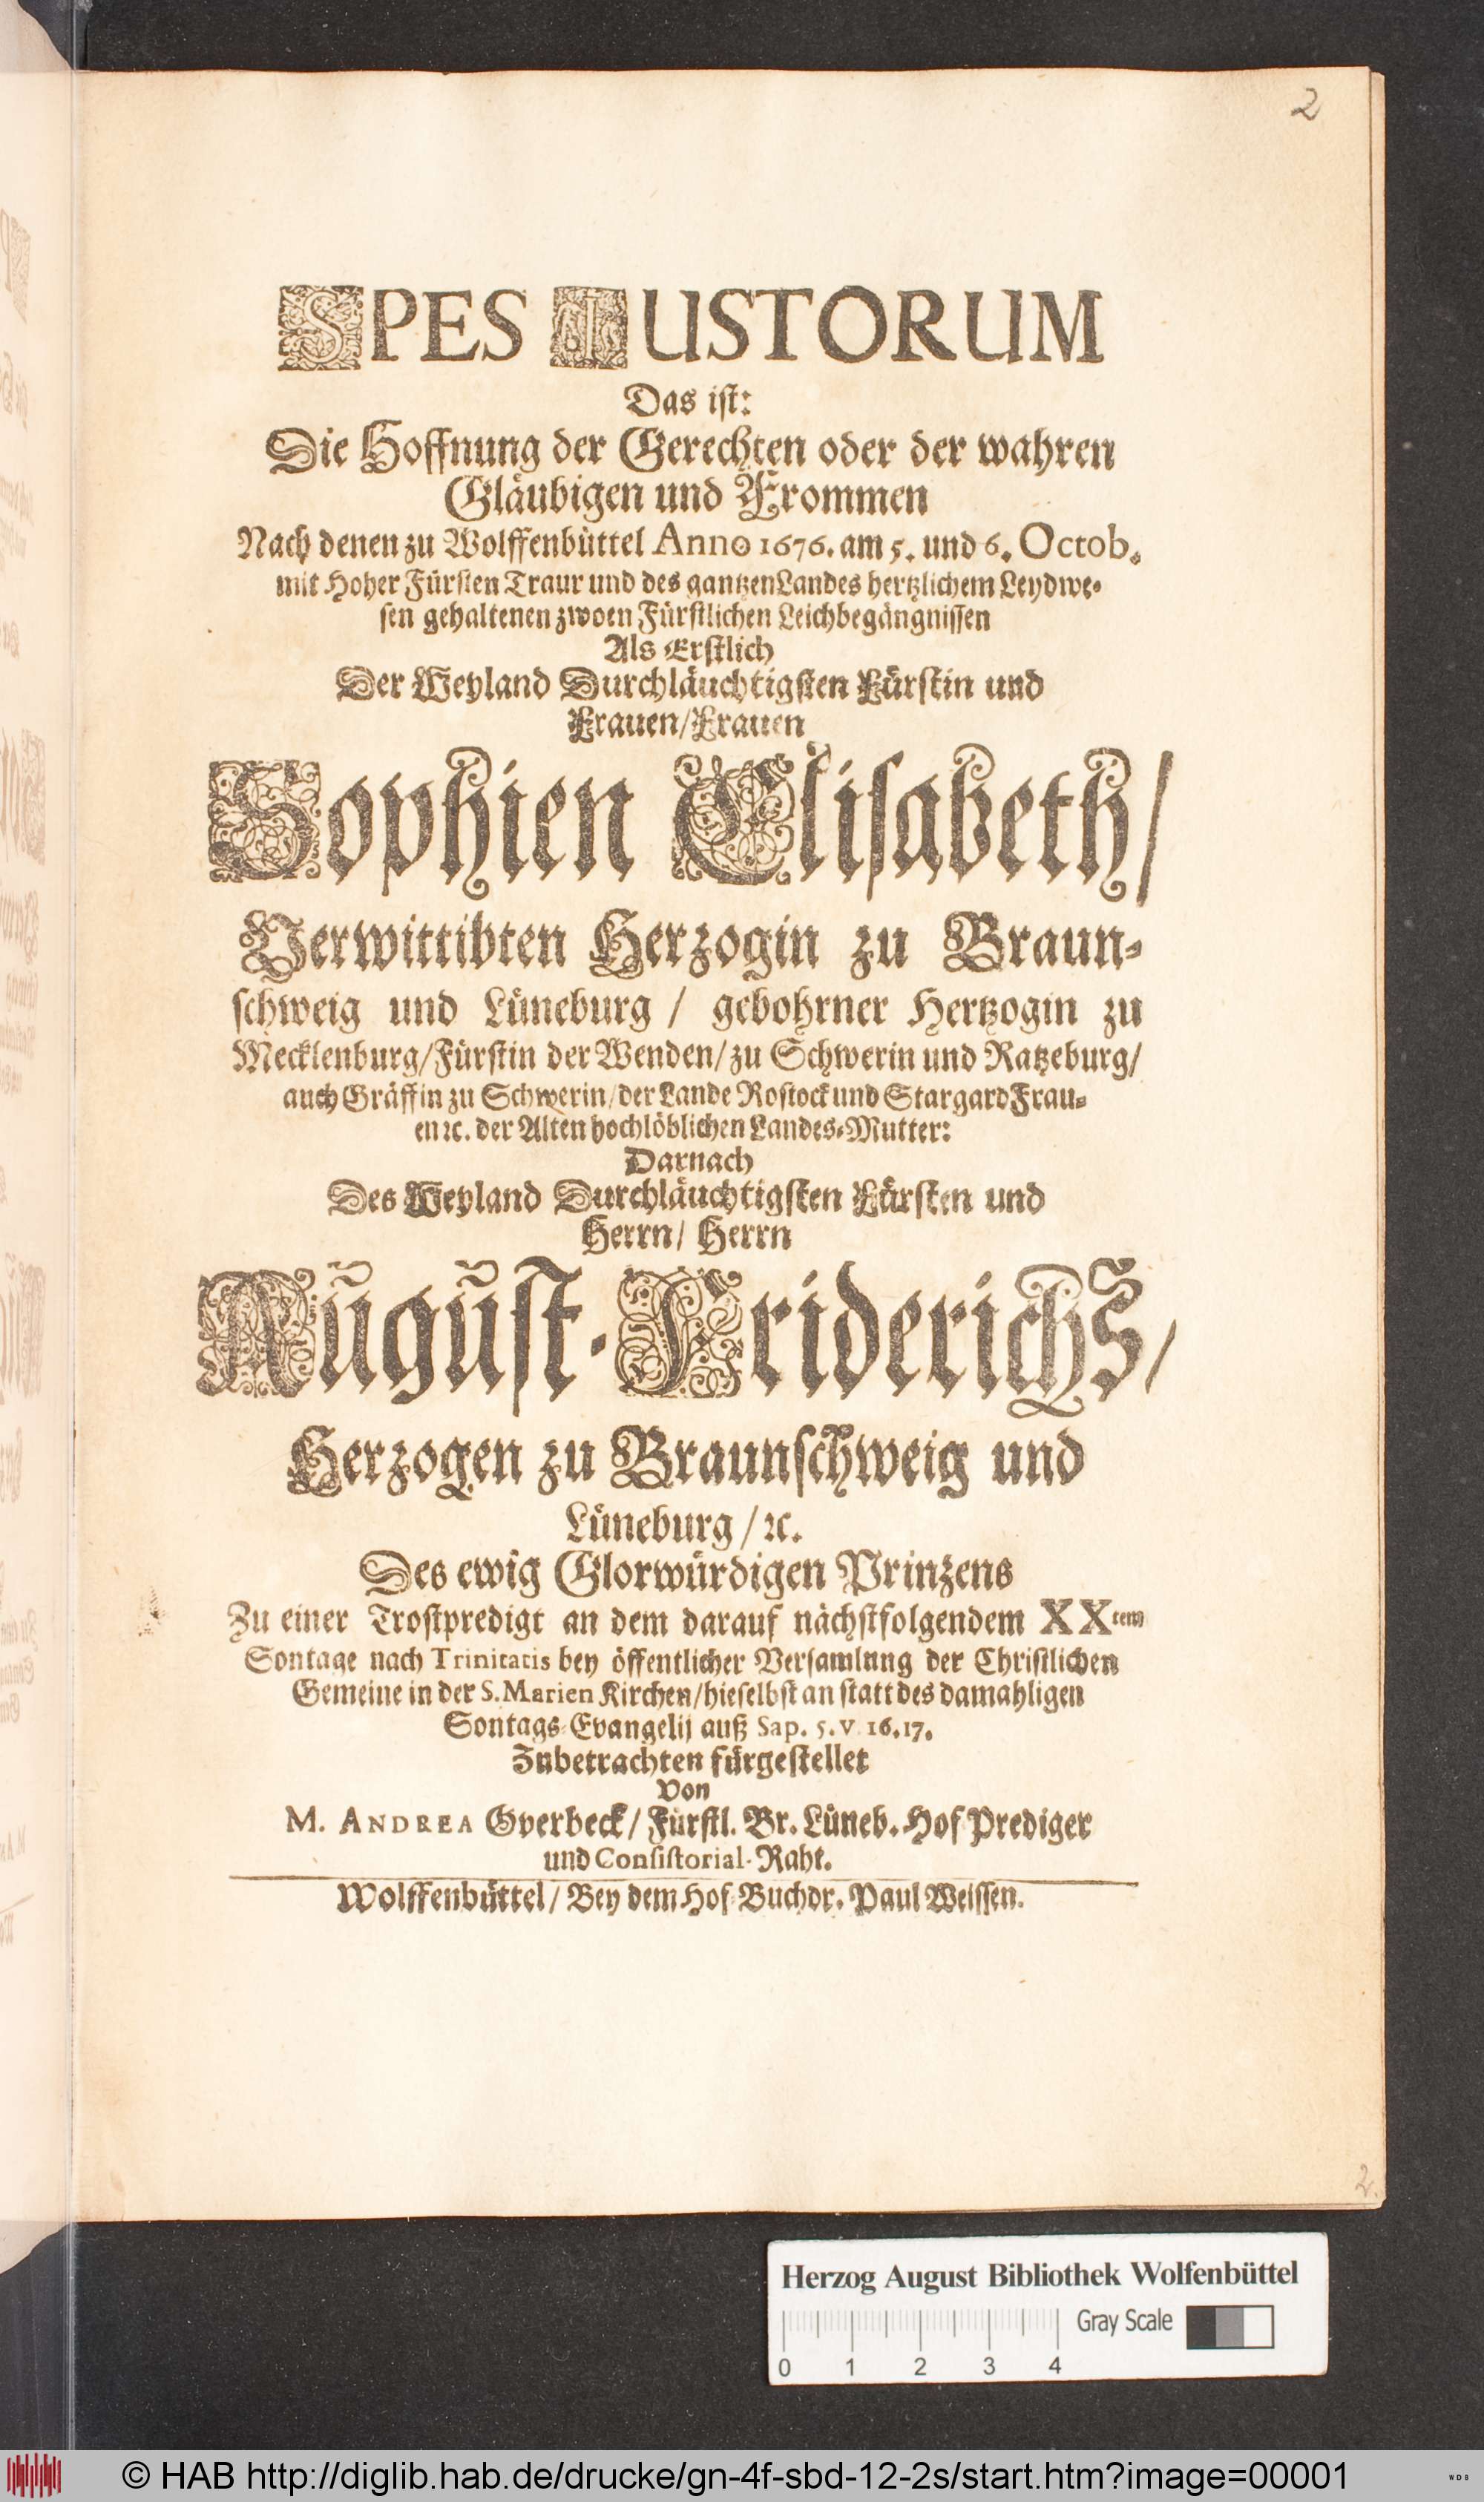 2
SPES IUSTORUM
Das ist:
Die Hoffnung der Gerechten oder der wahren
Gläubigen und Frommen
Nach denen zu Wolffenbüttel Anno 1676. am 5. und 6. Octob.
mit Hoher Fürsten Traur und des gantzen Landes hertzlichem Leydwe-
sen gehaltenen zwoen Fürstlichen Leichbegängnissen
Als Erstlich
Der Weyland Durchläuchtigsten Fürstin und
Frauen/Frauen
Sophien Elisabeth/
Verwittibten Herzogin zu Braun-
schweig und Lüneburg / gebohrner Hertzogin zu
Mecklenburg/Fürstin der Wenden/zu Schwerin und Ratzeburg/
auch Gräffin zu Schwerin/der Lande Rostock und Stargard Frau-
en ꝛc. der Alten hochlöblichen Landes-Mutter:
Darnach
Des Weyland Durchläuchtigsten Fürsten und
Herrn/ Herrn
August-Friderichs/
Herzogen zu Braunschweig und
Lüneburg /ꝛc.
Des ewig Glorwürdigen Prinzens
Zu einer Trostpredigt an dem darauf nächstfolgendem XXtem
Sontage nach Trinitatis bey öffentlicher Versamlung der Christlichen
Gemeine in der S. Marien Kirchen/hieselbst an statt des damahligen
Sontags-Evangelij auß Sap. 5. v. 16. 17.
Zubetrachten fürgestellet
Von
M. ANDREA Overbeck/ Fürstl. Br. Lüneb. Hof Prediger
und Consistorial-Raht.
Wolffenbüttel/ Bey dem Hof-Buchdr. Paul Weissen.
2.
Herzog August Bibliothek Wolfenbüttel
Gray Scale
0 1 2 3 4
© HAB http://diglib.hab.de/drucke/gn-4f-sbd-12-2s/start.htm?image=00001
WDB